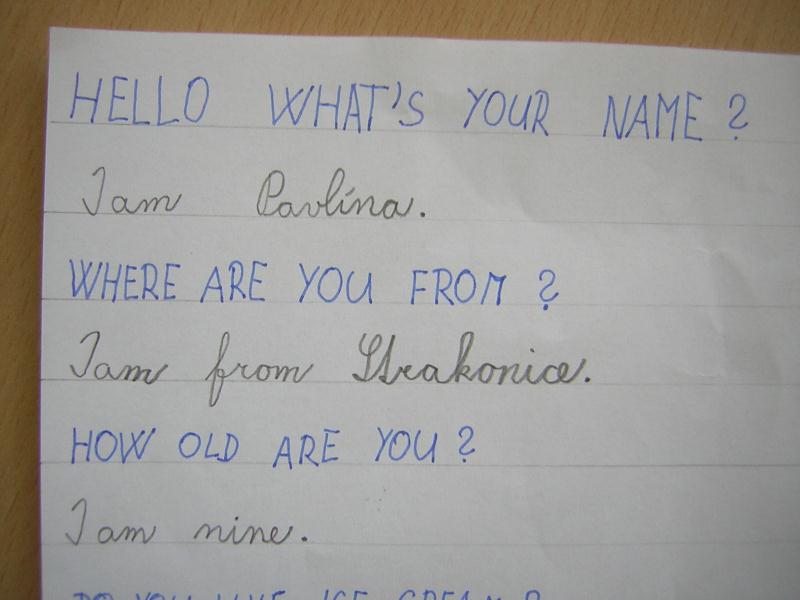 HELLO WHAT'S YOUR NAME?
I am Pavlína.
WHERE ARE YOU FROM?
I am from Strakonice.
HOW OLD ARE YOU?
I am nine.
DO YOU LIKE ICE CREAM?